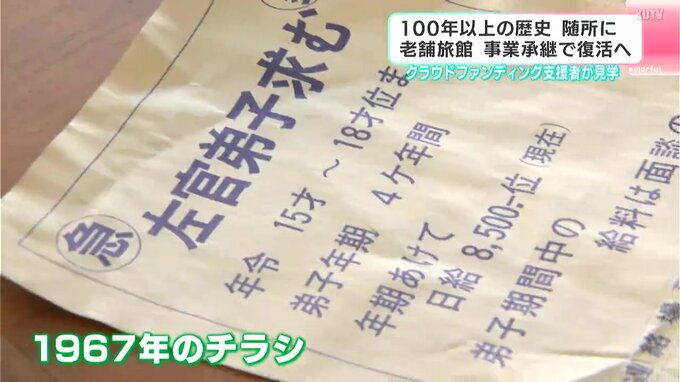 KUTV
100年以上の歴史 随所に
老舗旅館 事業承継で復活へ
クラウドファンディング支援者が見学
colorful
急
左官弟子求む
年令 15才〜18才位ま
弟子年期 4ケ年間
年期あけて
日給 8,500-位(現在)
弟子期間中の
給料は面談の
1967年のチラシ